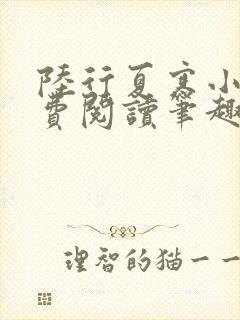 陸行夏寒小
費閱讀筆趣
理智的猫一一